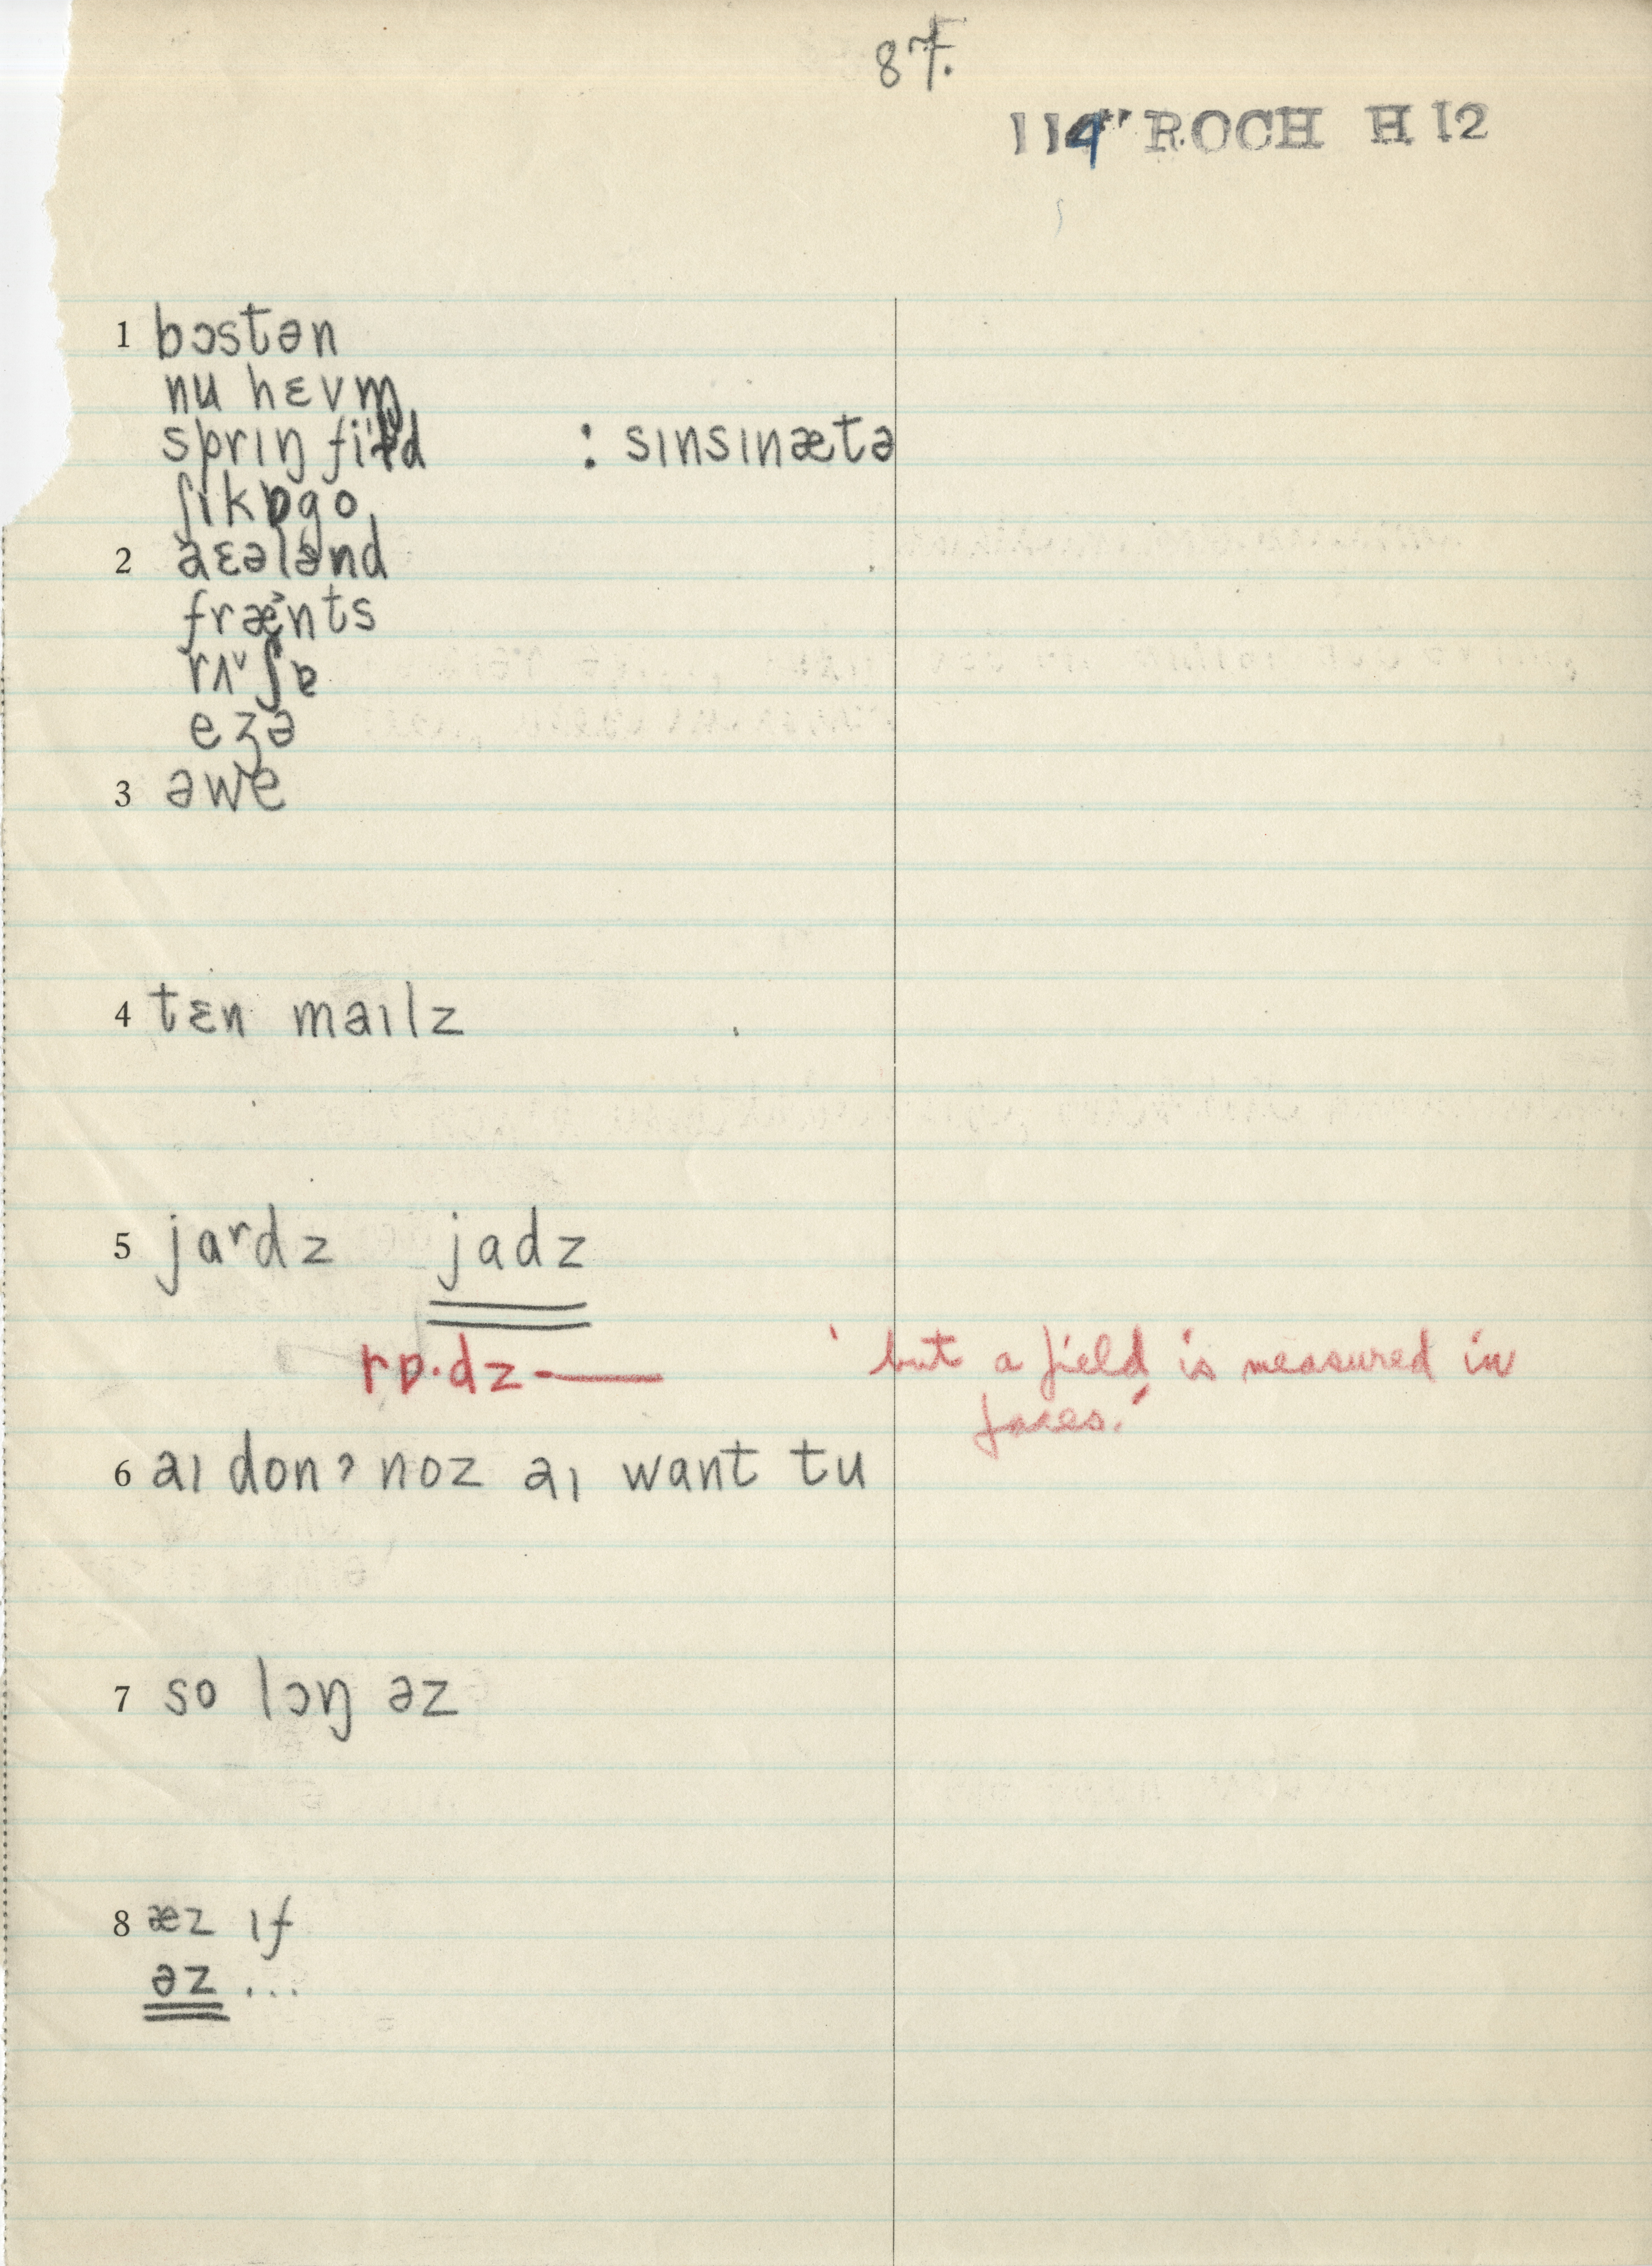 87.
114" ROCH H 12
1 bɔstən
nu hɛvm̩
sprɪŋ fiɫd : sɪnsɪnætə
ʃɪkɒgo
2 aɛələnd
fræᵊnts
rʌᵛʃɐ
eʒə
3 əwe
4 tɛn maɪlz
5 jaʳdz jadz
rɒ·dz— ' but a field is measured in
6 aɪ donʔ noz aɪ want tu
7 so lɔŋ əz
8 æz ɪf
əz ...